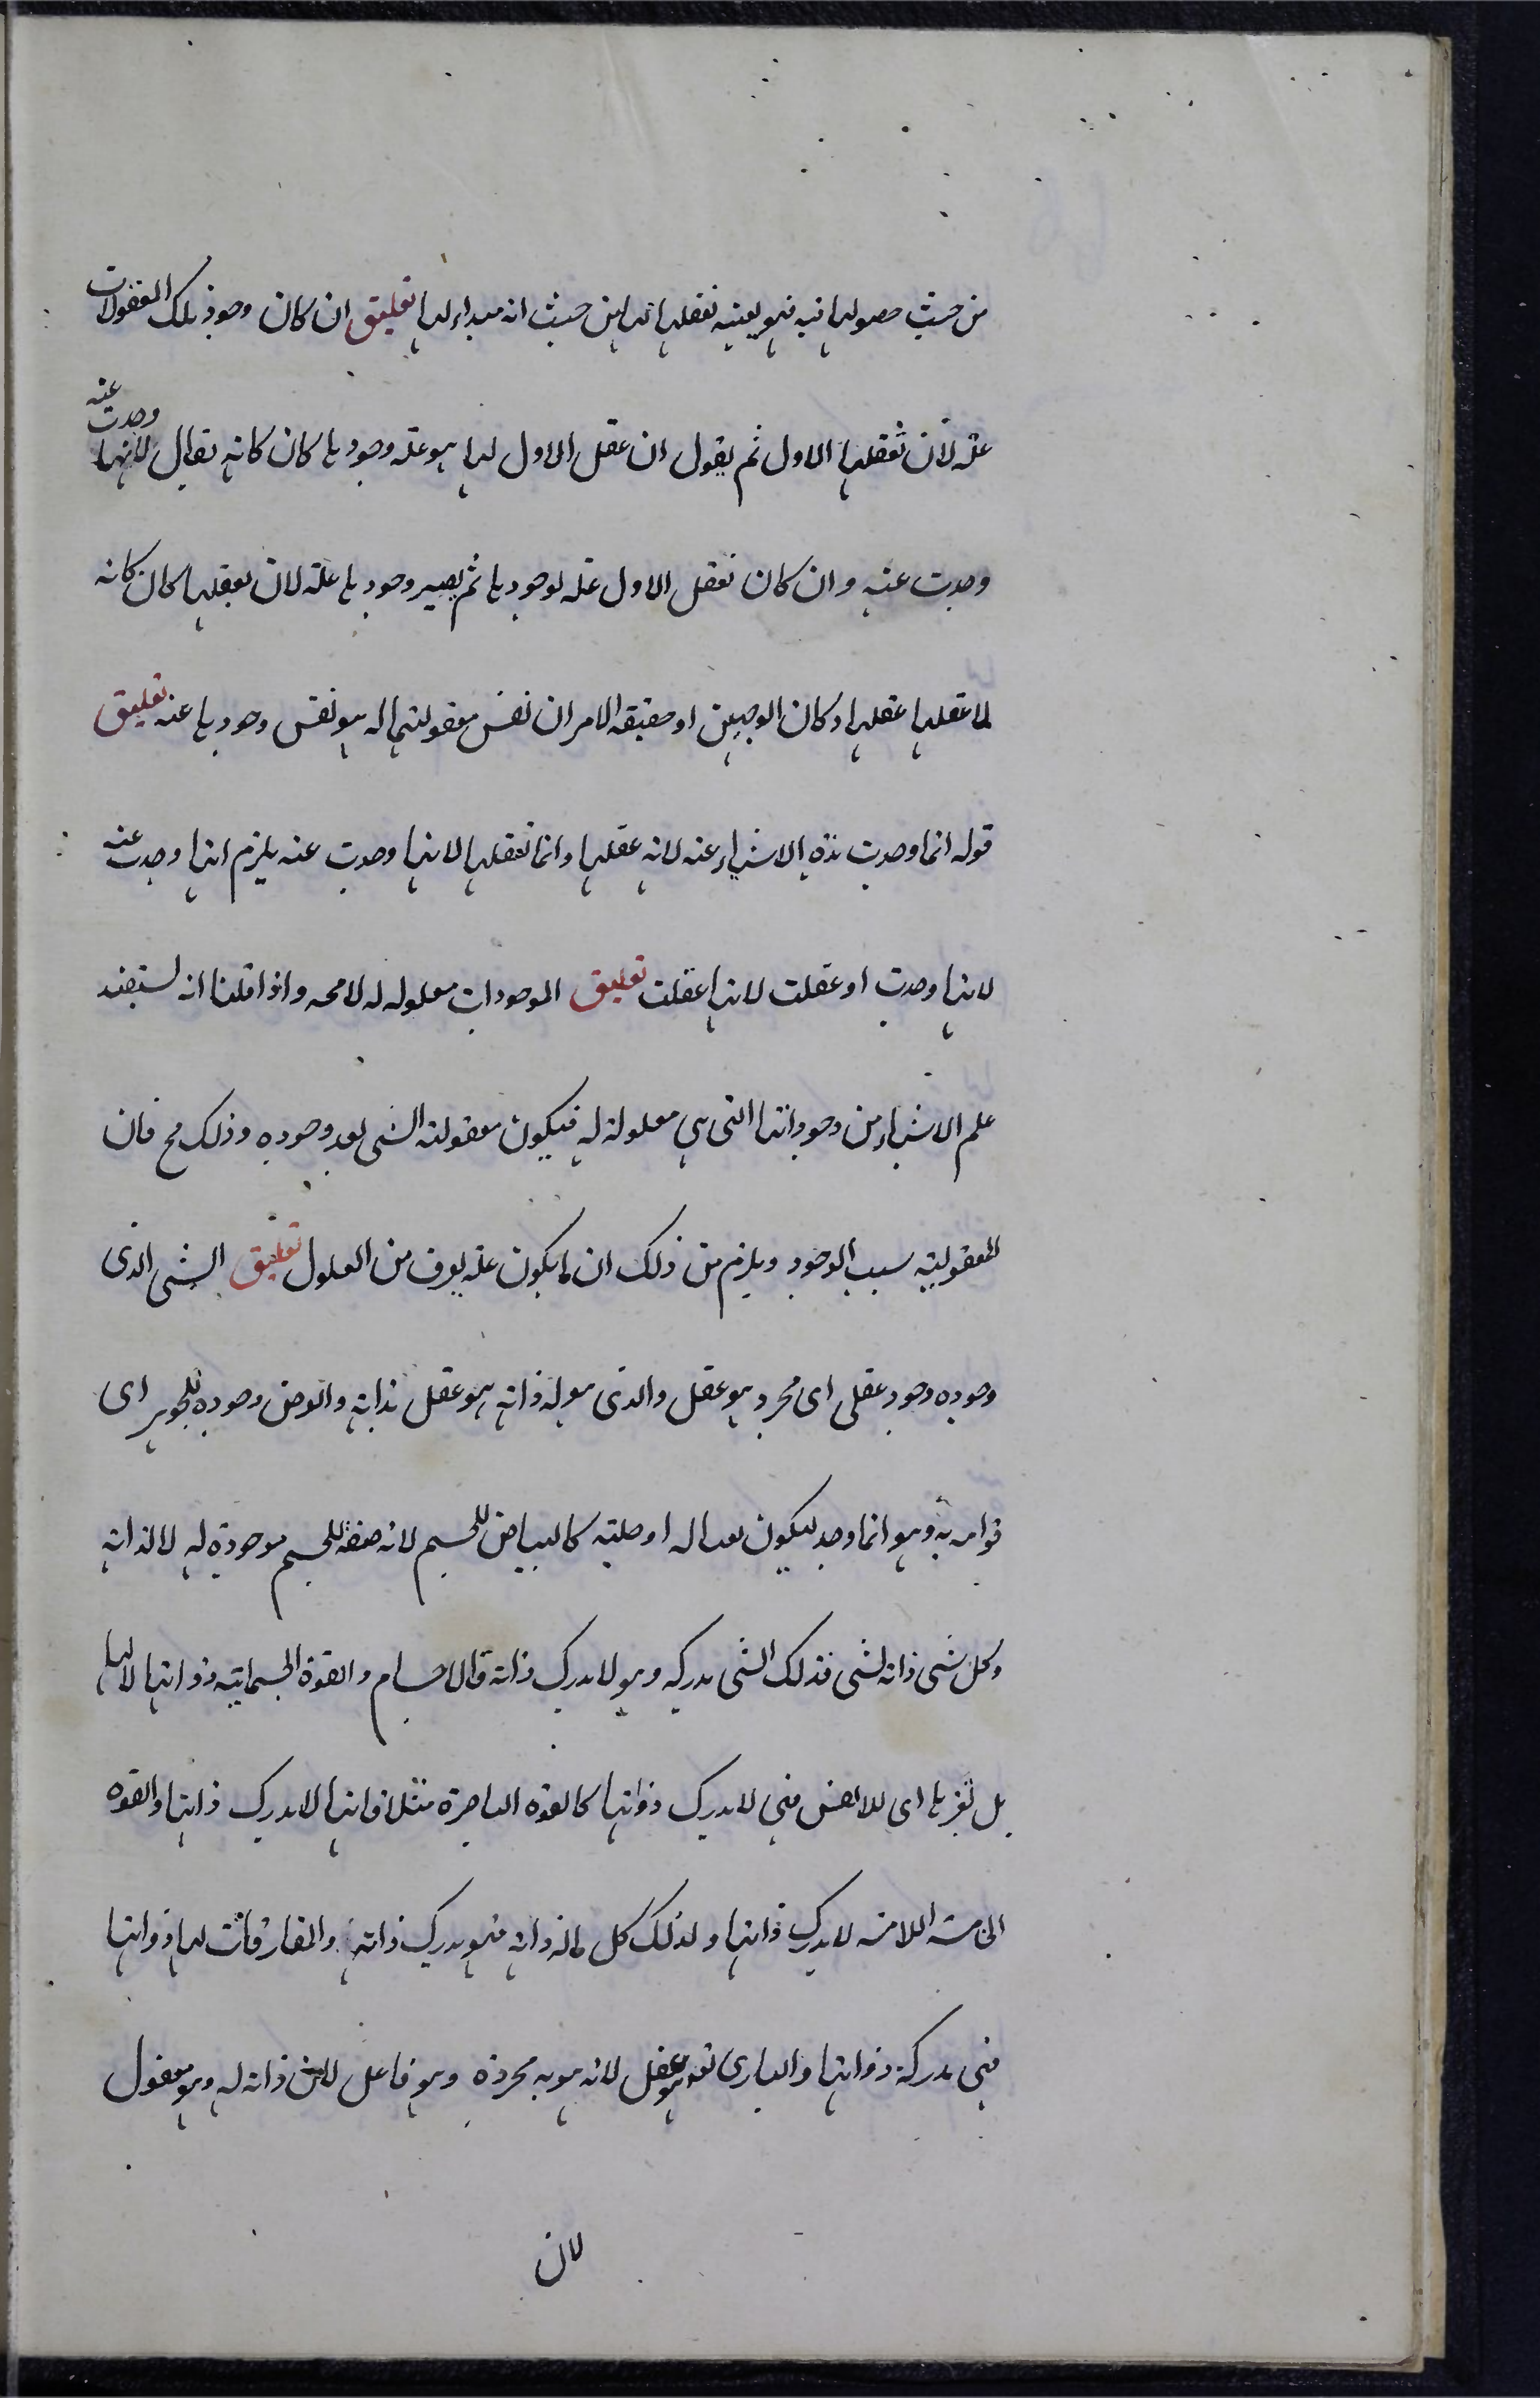 من حيث حصولها فيه فهو بعينه تعقلها لها من حيث انه مبداء لها تعليق ان كان وجود تلك المعقولات
علة لان تعقلها الاول ثم يقول ان عقل الاول لها هو علة وجودها كان كانه يقال لانها وجدت عنه
وجدت عنه وان كان تعقل الاول علة لوجودها ثم يصير وجودها علة لان يعقلها كان كانه
لما عقلها عقلها وكان الوجهين او حقيقة الامر ان نفس معقوليتها له هو نفس وجودها عنه تعليق
قوله انما وجدت هذه الاشياء عنه لانه عقلها وانما تعقلها لانها وجدت عنه يلزم انها وجدت عنه
لانها وجدت او عقلت لانها عقلت تعليق الموجودات معلوله له لا محه واذا قلنا انه يستفيد
علم الاشياء من وجوداتها التى هى معلولة له فيكون معقولية الشى بعد وجوده وذلك مح فان
المعقولية سبب الوجود ويلزم من ذلك ان لا يكون علة يعرف من المعلول تعليق الشى الذى
وجوده وجود عقلى اى مجرد هو عقل والذى هو له ذاته هو عقل بذاته والعرض وجوده للجوهر اى
قوامه به وهو انما وجد ليكون له او حليته كالبياض للجسم لانه صفة للجسم موجودة له لا لذاته
وكل شى ذاته لشى فذلك الشى يدركه وهو لا يدرك ذاته فالاجسام والقوة الجسمانية ذواتها لا لها
بل لغيرها اى للانفس فهى لا يدرك ذواتها كالقوة الباصرة مثلا فانها لا يدرك ذاتها والقوة
الحاسة اللامسه لا يدرك ذاتها ولذلك كل ما له ذاته فهو يدرك ذاته والمفارقات لها ذواتها
فهى مدركة ذواتها والبارى تعه هو عقل لانه هوية مجردة وهو عاقل لان ذاته له وهو معقول
لان